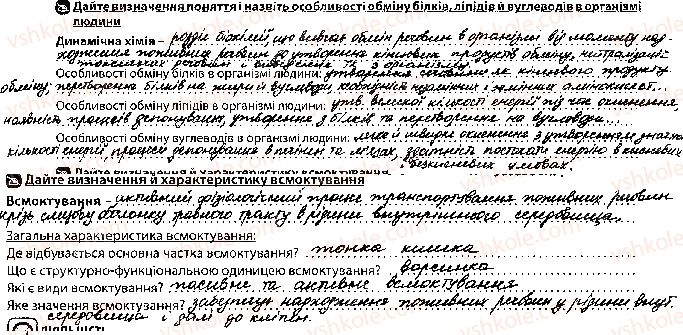 Дайте визначення поняття і назвіть особливості обміну білків, ліпідів й вуглеводів в організмі
людини
Динамічна хімія – розділ біохімії, що вивчає обмін речовин в організмі від моменту над-
ходження поживних речовин до утворення кінцевих продуктів обміну, нейтралізації
токсичних речовин і виведення їх з організму.
Особливості обміну білків в організмі людини: утворення сечовини як кінцевого продукту
обміну; перетворення білків на жири й вуглеводи, наявність незамінних і замінних амінокислот.
Особливості обміну ліпідів в організмі людини: утв. великої кількості енергії під час окиснення,
наявність процесів депонування, утворення з білків та перетворення на вуглеводи.
Особливості обміну вуглеводів в організмі людини: легке й швидке окиснення з утворенням значної
кількості енергії, процеси депонування в печінці та м'язах, здатність постачати енергію в кисневих
і безкисневих умовах.
Дайте визначення й характеристику всмоктування
Всмоктування – активний фізіологічний процес транспортування поживних речовин
крізь слизову оболонку травного тракту в рідини внутрішнього середовища.
Загальна характеристика всмоктування:
Де відбувається основна частка всмоктування? тонка кишка
Що є структурно-функціональною одиницею всмоктування? ворсинка
Які є види всмоктування? пасивне та активне всмоктування
Яке значення всмоктування? завершує надходження поживних речовин у рідини внут.
середовища і далі до клітин.